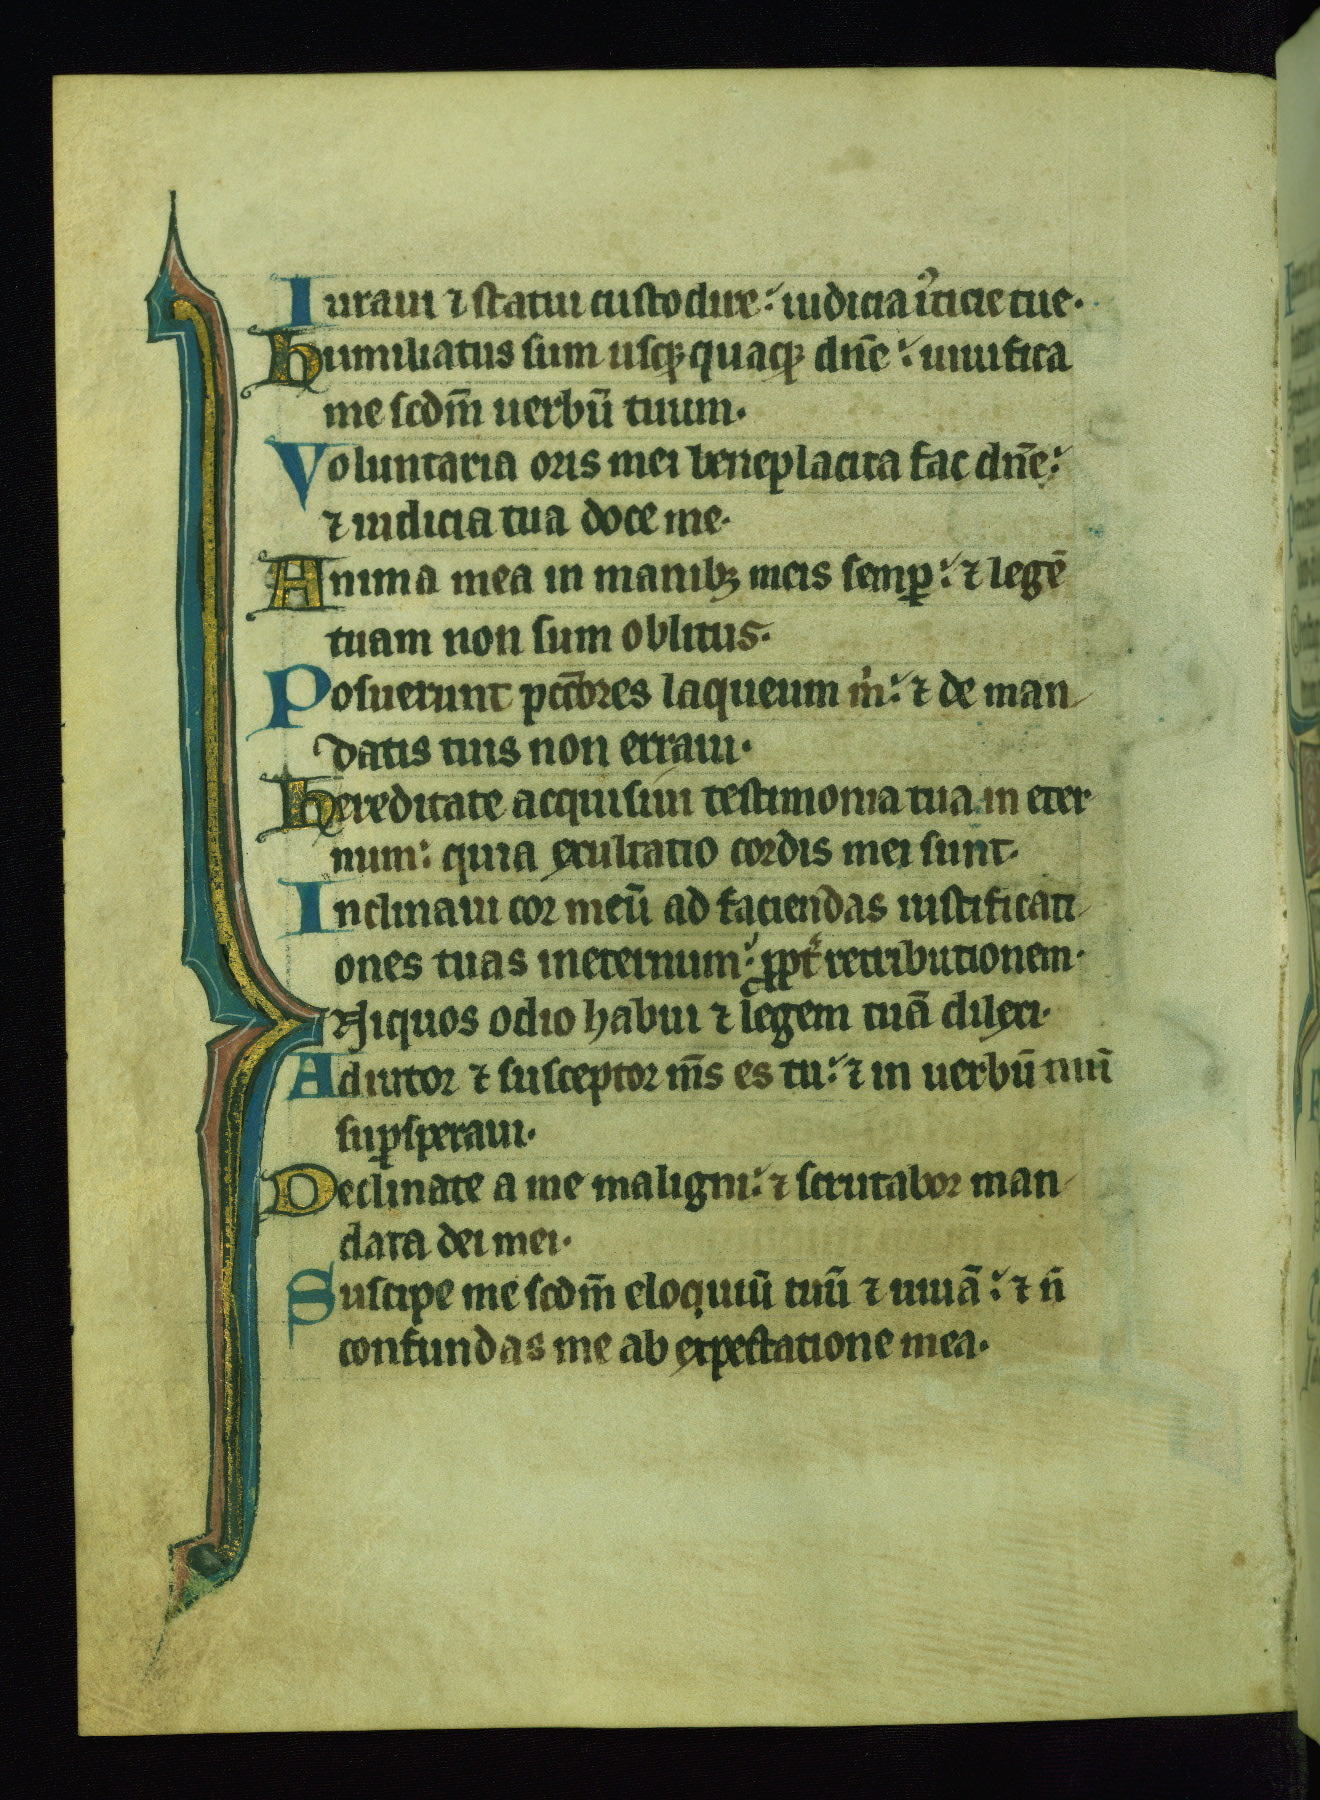 Iuraui ⁊ statui custodire: iudicia iusticie tue.
humiliatus sum usqꝫ quaqꝫ dn̄e: uiuifica
me scd̄m uerbū tuum.
Voluntaria oris mei beneplacita fac dn̄e:
⁊ iudicia tua doce me.
Anima mea in manibꝫ meis semꝑ: ⁊ legē
tuam non sum oblitus.
Posuerunt pcc̄ores laqueum m̍: ⁊ de man
datis tuis non erraui.
hereditate acquisiui testimonia tua in eter
num: quia exultatio cordis mei sunt.
Inclinaui cor meū ad faciendas iustificati
ones tuas in eternum: ꝓpt̉ retributionem.
INiquos odio habui ⁊ legem tuā dilexi.
Adiutor ⁊ susceptor m̄s es tu: ⁊ in uerbū tuū
suꝑsperaui.
Declinate a me maligni: ⁊ scrutabor man
data dei mei.
Suscipe me scd̄m eloquiū tuū ⁊ uiuā: ⁊ n̄
confundas me ab expectatione mea.